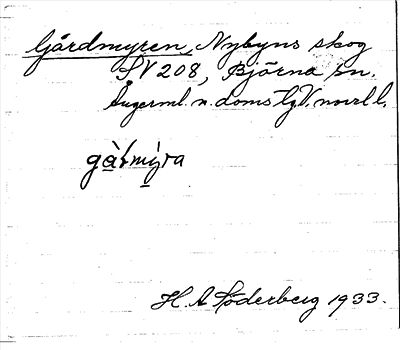 Gårdmyren, Nybyns skog
SV 208, Björna sn.
Ångerml. n. doms. V. norrl l.
gàlmýra
H. A. Söderberg 1933.